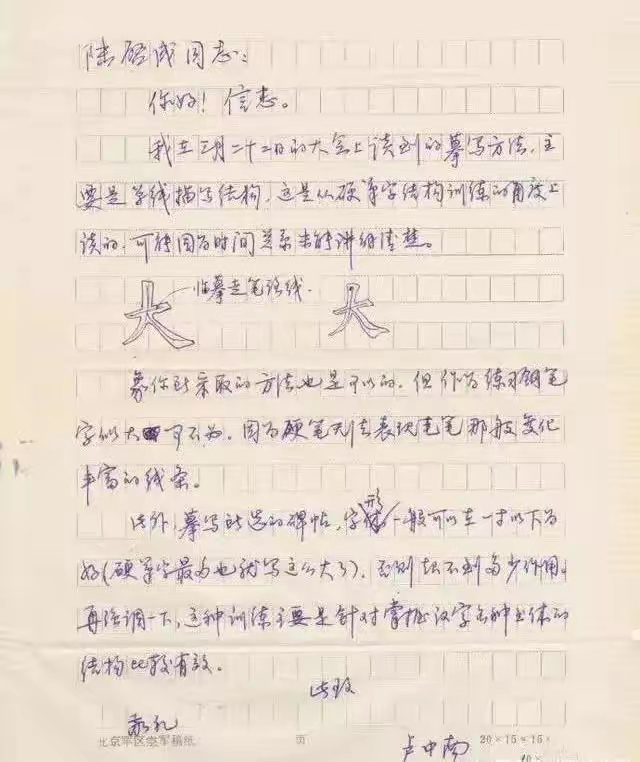 陆启成同志：
你好！信悉。
我在三月二十二日的大会上谈到的摹写方法，主
要是单线描写结构，这是从硬笔字结构训练的角度上
谈的，可能因为时间关系未能讲得清楚。
大 临摹走笔路线. 大
象你所采取的方法也是可以的，但作为练习钢笔
字似大可不为，因为硬笔无法表现毛笔那般变化
丰富的线条。
此外，摹写所选的碑帖，字形一般可以在一寸以下为
好（硬笔字最多也就写这么大了），否则起不到多少作用。
再强调一下，这种训练主要是针对掌握汉字各种书体的
结构比较有效。
此致
敬礼
卢中南
北京军区空军稿纸 页 20×15=15×